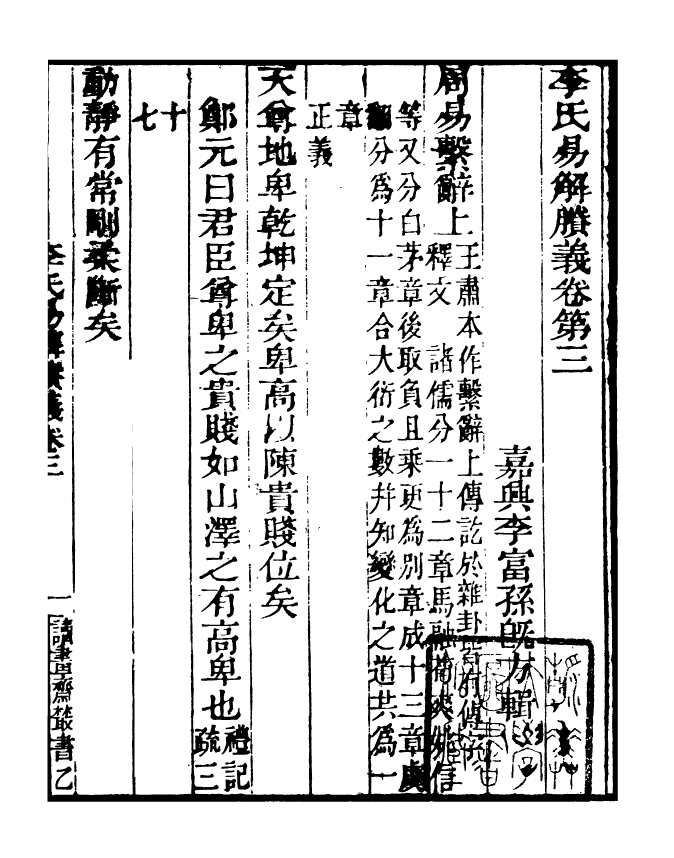 李氏易解賸義卷第三
嘉興李富孫旣方輯
周易繫辭上
王肅本作繫辭上傳訖於雜卦皆有傳字
釋文　諸儒分一十二章馬融荀爽姚信
等又分白茅章後取負且乘更爲別章成十三章虞
翻分爲十一章合大衍之數幷知變化之道共爲一
章
正義
天尊地卑乾坤定矣卑高以陳貴賤位矣
鄭元曰君臣尊卑之貴賤如山澤之有高卑也
禮記
疏三
十
七
動靜有常剛柔斷矣
李氏易解賸義卷三
一
讀書齋叢書乙